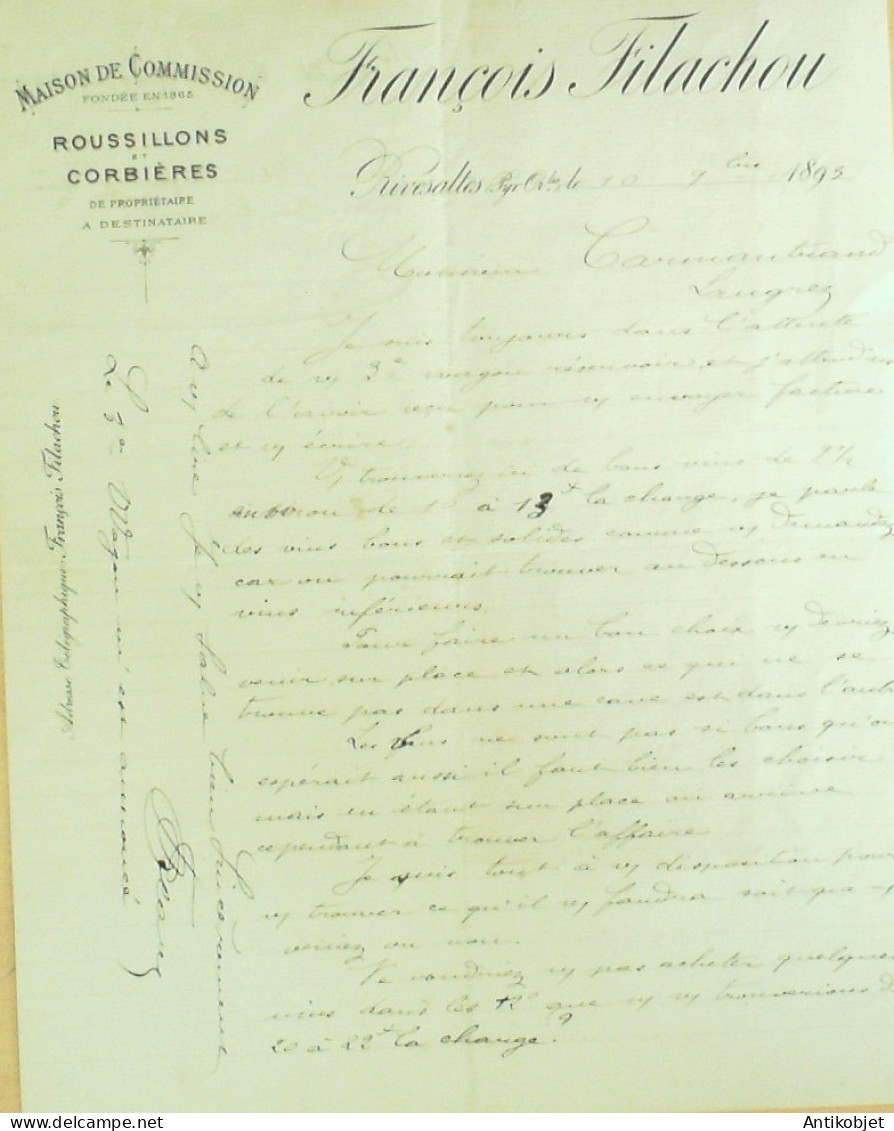 MAISON DE COMMISSION
FONDÉE EN 1865
ROUSSILLONS
ET
CORBIÈRES
DE PROPRIÉTAIRE
A DESTINATAIRE
François Filachou
Rivesaltes Pyr. Or.les le 10 9bre 1895
Monsieur Carmantrand
Langres
Je suis toujours dans l'attente
de vs 3e wagon réservoir, et j'attendais
de l'avoir reçu pour vs envoyer facture
et vs écrire.
Vs trouverez ici de bons vins de
environ de à 13 la charge, je parle
des vins bons et solides comme vs demandez
car on pourrait trouver au dessous en
vins inférieurs.
Pour faire un bon choix vs devriez
venir sur place et alors ce qui ne se
trouve pas dans une cave est dans l'autre
Les vins ne sont pas si bons qu'on
espérait aussi il faut bien les choisir
mais en étant sur place on arrive
cependant à trouver l'affaire
Je suis tout à vs disposition pour
vs trouver ce qu'il vs faudra soit que vs
veniez ou non.
Ne voudriez vs pas acheter quelques
vins dans les 12° que vs trouverions de
20 à 22 la charge?
A vs lire Je vs salue bien sincèrement
Le 3e Wagon m'est annoncé
Adresse Télégraphique: François Filachou
Antikobjet